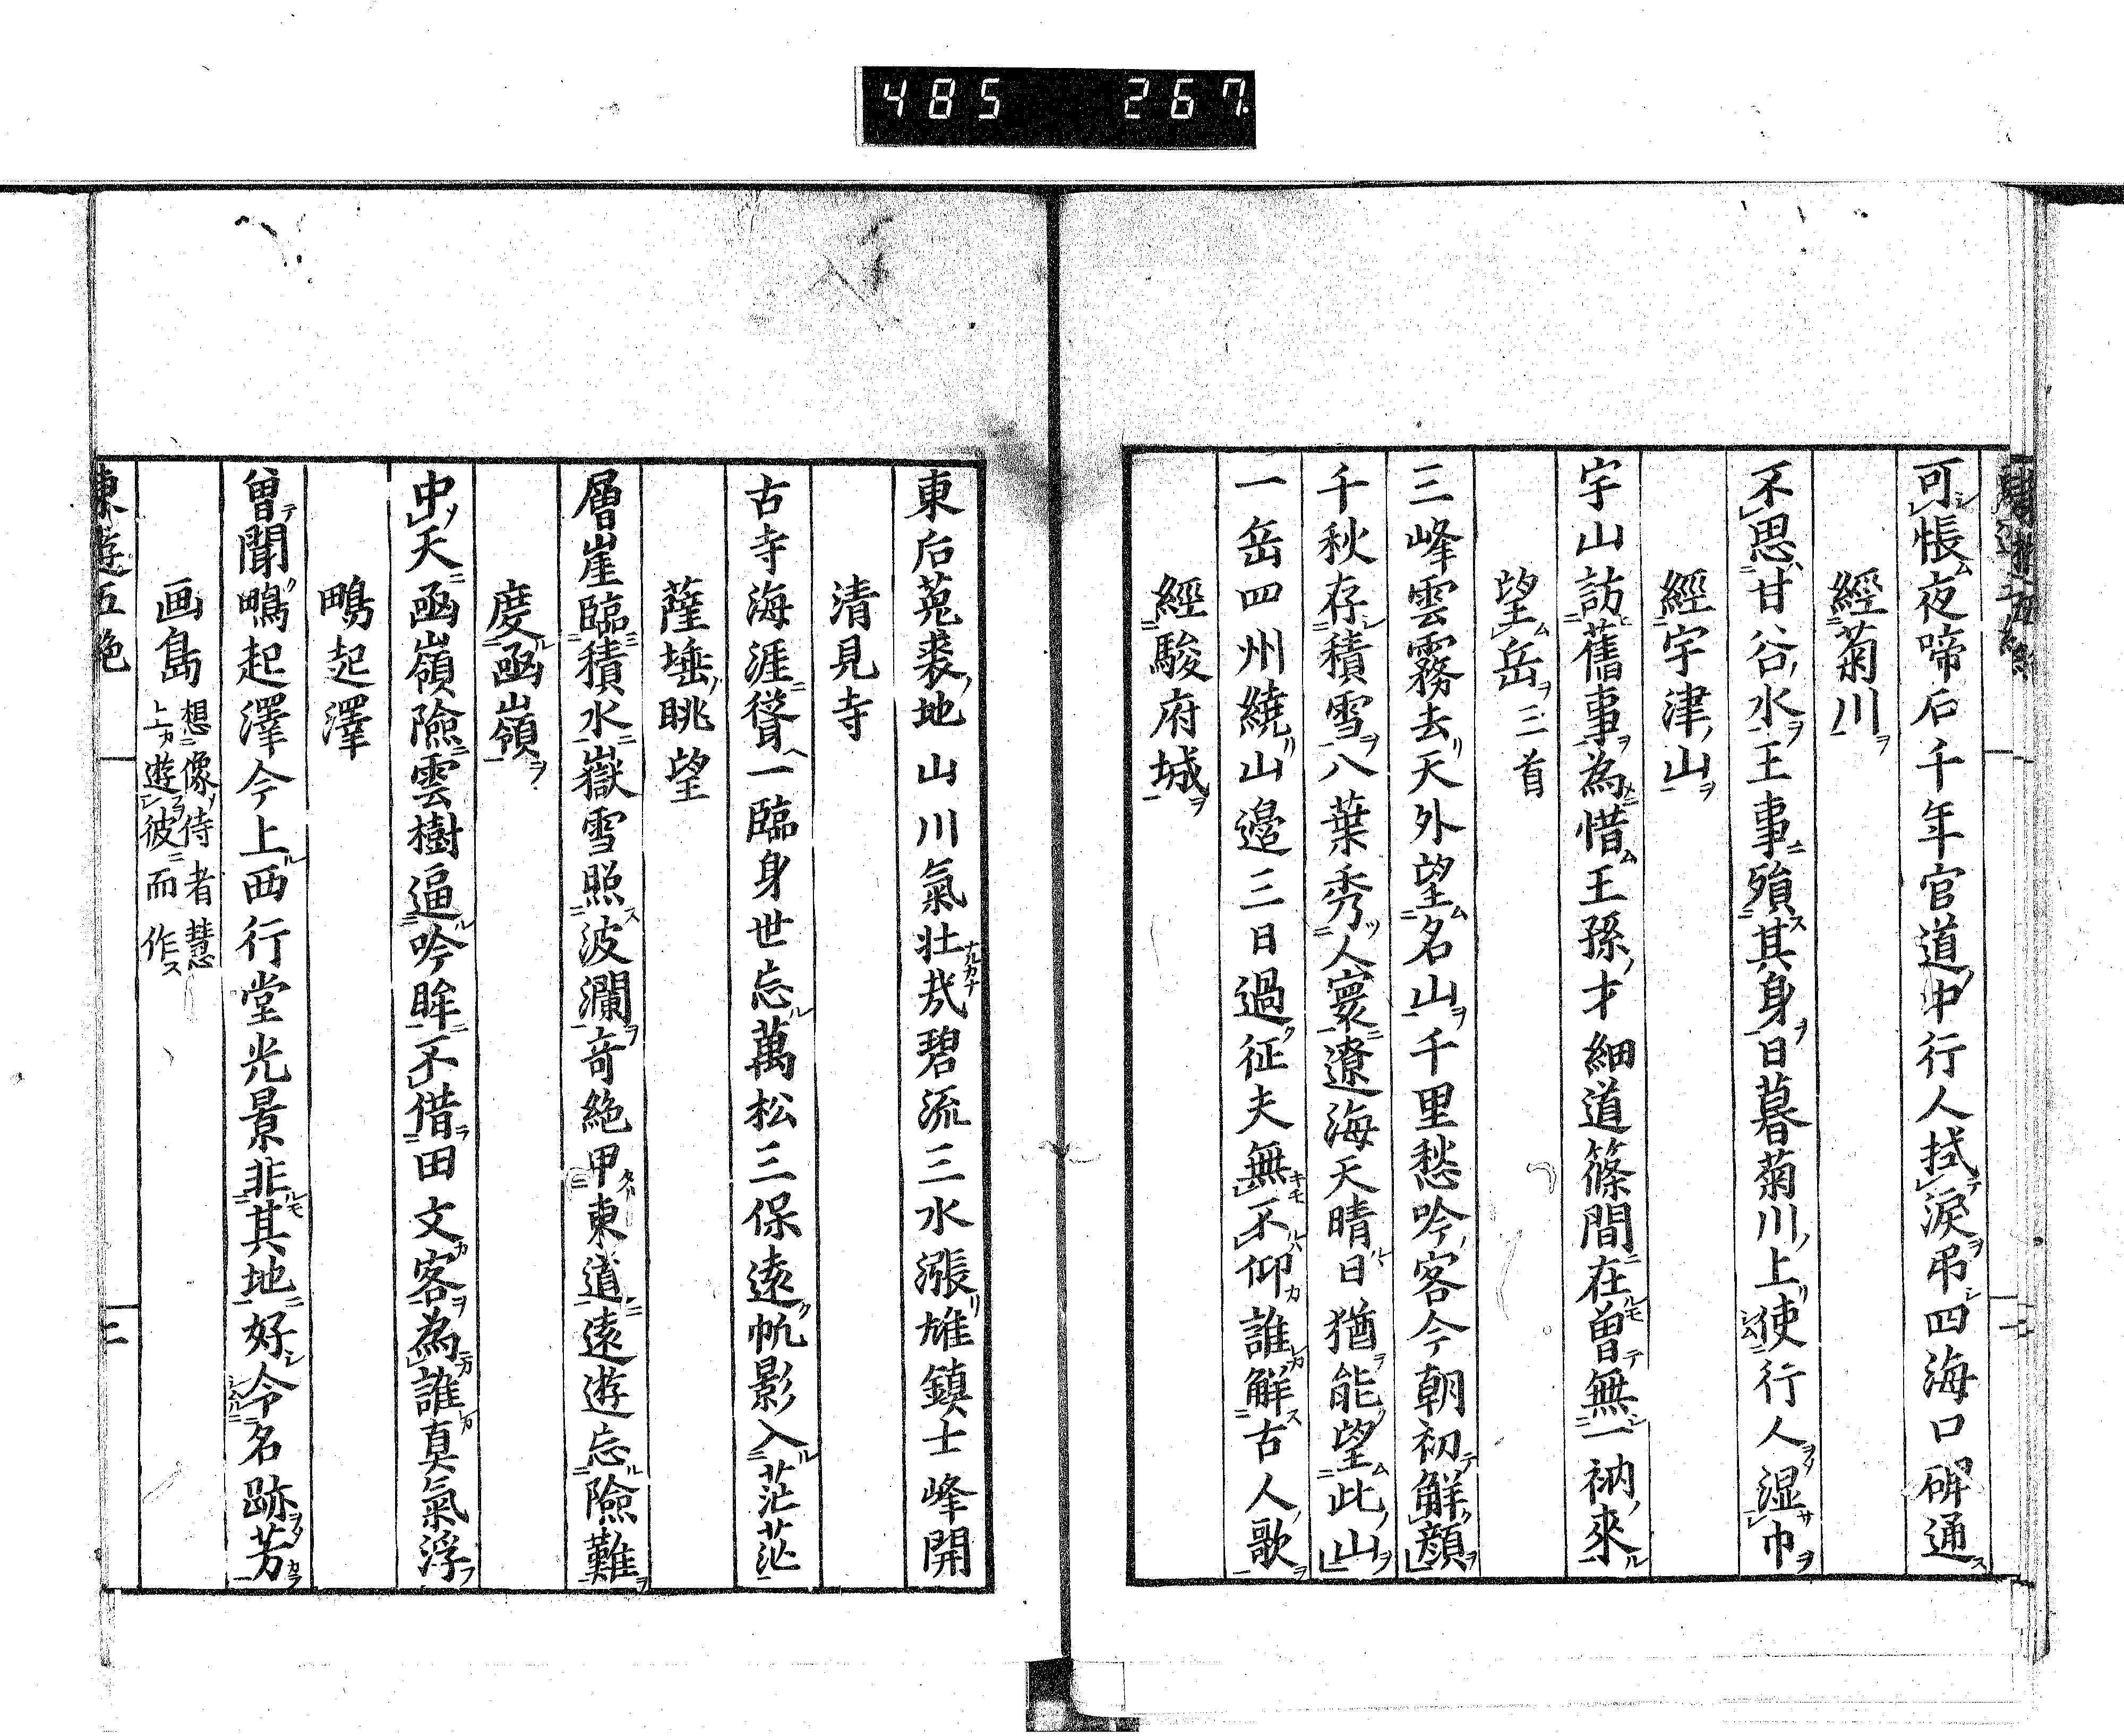 485 267
可悵夜啼石千年官道中行人拭淚弔四海口碑通
經菊川
不思甘谷水王事殞其身日暮菊川上使行人濕巾
經宇津山
宇山訪舊事為惜王孫才細道篠間在曾無一衲來
望岳三首
三峰雲霧去天外望名山千里愁吟客今朝初解顏
千秋存積雪八葉秀人寰遼海天晴日猶能望此山
一岳四州繞山邊三日過征夫無不仰誰解古人歌
經駿府城
東后菟裘地山川氣壯哉碧流三水漲雄鎮士峰開
清見寺
古寺海涯聳一臨身世忘萬松三保遠帆影入茫茫
薩埵眺望
層崖臨積水嶽雪照波瀾奇絶甲東道遠遊忘險難
度凾嶺
中天凾嶺險雲樹逼吟眸不借田文客為誰真氣浮
鴫起澤
曾聞鴫起澤今上西行堂光景非其地好令名跡芳
画島 想像侍者慧
上遊彼而作
東遊五絶 二